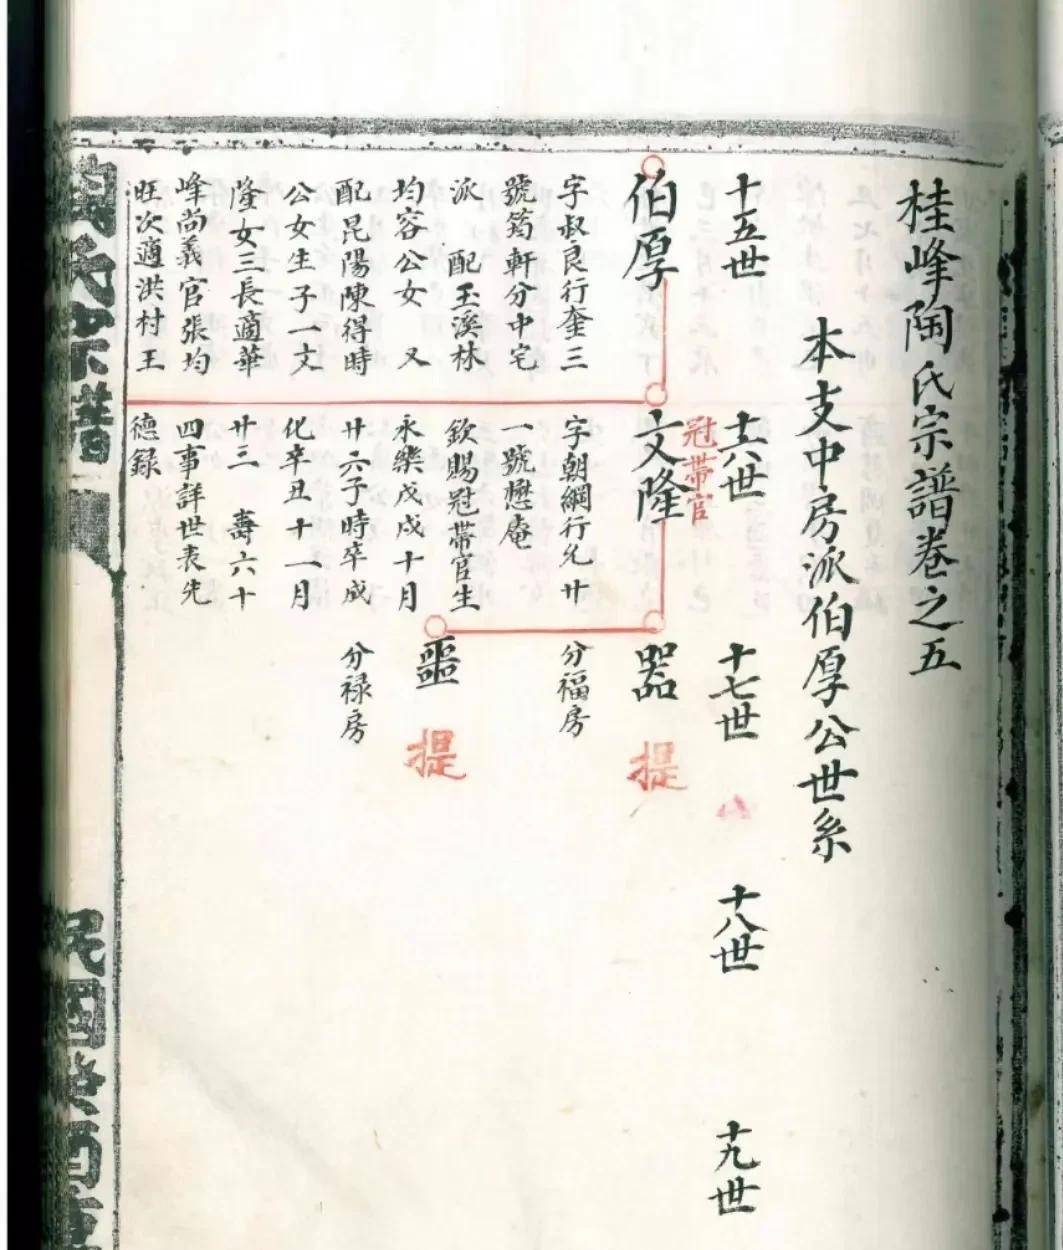 桂峰陶氏宗譜卷之五
本支中房派伯厚公世系
十五世
十六世
十七世
十八世
十九世
伯厚
字叔良行奎三
號筠軒分中宅
派 配玉溪林
均容公女 又
配昆陽陳得時
公女生子一文
隆女三長適華
峰尚義官張均
旺次適洪村王
冠帶官
文隆
字朝綱行允廿
一號懋庵
欽賜冠帶官生
永樂戊戌十月
廿六子時卒成
化辛丑十一月
廿三 壽六十
四事詳世表先
德録
噐
提
分福房
噩
提
分禄房
陶氏宗譜
民國癸酉重